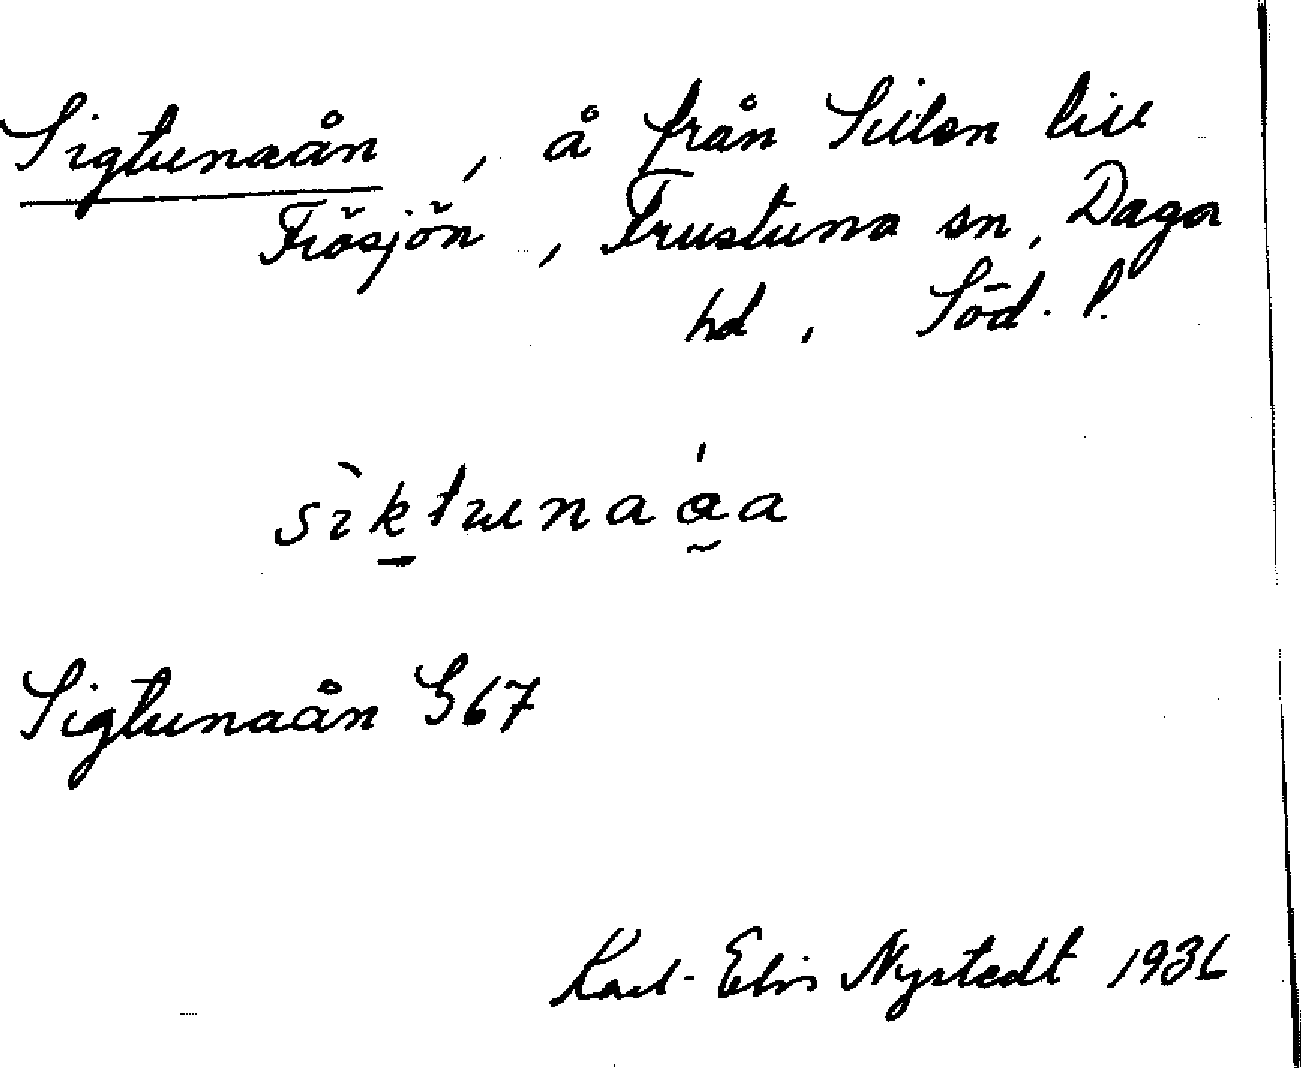 Sigtunaån, å från Sillen till
Frösjön, Frustuna sn, Daga
hd, Söd. l.
siktunaåa
Sigtunaån G67
Karl-Elis Nystedt 1936